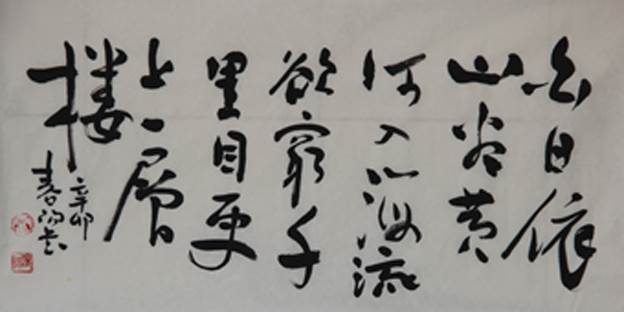 白日依
山尽黄
河入海流
欲窮千
里目更
上一層
楼
辛卯